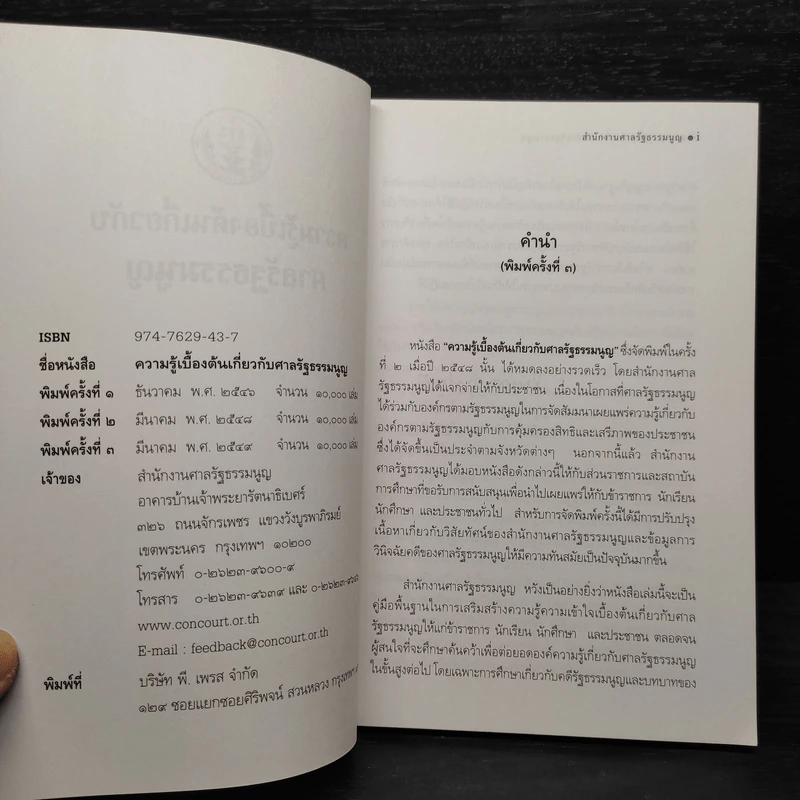 ISBN 974-7629-43-7
ชื่อหนังสือ ความรู้เบื้องต้นเกี่ยวกับศาลรัฐธรรมนูญ
พิมพ์ครั้งที่ ๑ ธันวาคม พ.ศ. ๒๕๔๖ จำนวน ๑๐,๐๐๐ เล่ม
พิมพ์ครั้งที่ ๒ มีนาคม พ.ศ. ๒๕๔๘ จำนวน ๑๐,๐๐๐ เล่ม
พิมพ์ครั้งที่ ๓ มีนาคม พ.ศ. ๒๕๔๙ จำนวน ๑๐,๐๐๐ เล่ม
เจ้าของ สำนักงานศาลรัฐธรรมนูญ
อาคารบ้านเจ้าพระยารัตนาธิเบศร์
๓๒๖ ถนนจักรเพชร แขวงวังบูรพาภิรมย์
เขตพระนคร กรุงเทพฯ ๑๐๒๐๐
โทรศัพท์ ๐-๒๖๒๓-๙๖๐๐-๙
โทรสาร ๐-๒๖๒๓-๙๖๓๙ และ ๐-๒๖๒๓-
www.concourt.or.th
E-mail : feedback@concourt.or.th
พิมพ์ที่ บริษัท พี. เพรส จำกัด
๑๒๙ ซอยแยกซอยศิริพจน์ สวนหลวง กรุงเทพฯ
สำนักงานศาลรัฐธรรมนูญ ● i
คำนำ
(พิมพ์ครั้งที่ ๓)
หนังสือ "ความรู้เบื้องต้นเกี่ยวกับศาลรัฐธรรมนูญ" ซึ่งจัดพิมพ์ในครั้ง
ที่ ๒ เมื่อปี ๒๕๔๘ นั้น ได้หมดลงอย่างรวดเร็ว โดยสำนักงานศาล
รัฐธรรมนูญได้แจกจ่ายให้กับประชาชน เนื่องในโอกาสที่ศาลรัฐธรรมนูญ
ได้ร่วมกับองค์กรตามรัฐธรรมนูญในการจัดสัมมนาเผยแพร่ความรู้เกี่ยวกับ
องค์กรตามรัฐธรรมนูญกับการคุ้มครองสิทธิและเสรีภาพของประชาชน
ซึ่งได้จัดขึ้นเป็นประจำตามจังหวัดต่างๆ นอกจากนี้แล้ว สำนักงาน
ศาลรัฐธรรมนูญได้มอบหนังสือดังกล่าวนี้ให้กับส่วนราชการและสถาบัน
การศึกษาที่ขอรับการสนับสนุนเพื่อนำไปเผยแพร่ให้กับข้าราชการ นักเรียน
นักศึกษา และประชาชนทั่วไป สำหรับการจัดพิมพ์ครั้งนี้ได้มีการปรับปรุง
เนื้อหาเกี่ยวกับวิสัยทัศน์ของสำนักงานศาลรัฐธรรมนูญและข้อมูลการ
วินิจฉัยคดีของศาลรัฐธรรมนูญให้มีความทันสมัยเป็นปัจจุบันมากขึ้น
สำนักงานศาลรัฐธรรมนูญ หวังเป็นอย่างยิ่งว่าหนังสือเล่มนี้จะเป็น
คู่มือพื้นฐานในการเสริมสร้างความรู้ความเข้าใจเบื้องต้นเกี่ยวกับศาล
รัฐธรรมนูญให้แก่ข้าราชการ นักเรียน นักศึกษา และประชาชน ตลอดจน
ผู้สนใจที่จะศึกษาค้นคว้าเพื่อต่อยอดองค์ความรู้เกี่ยวกับศาลรัฐธรรมนูญ
ในขั้นสูงต่อไป โดยเฉพาะการศึกษาเกี่ยวกับคดีรัฐธรรมนูญและบทบาทของ